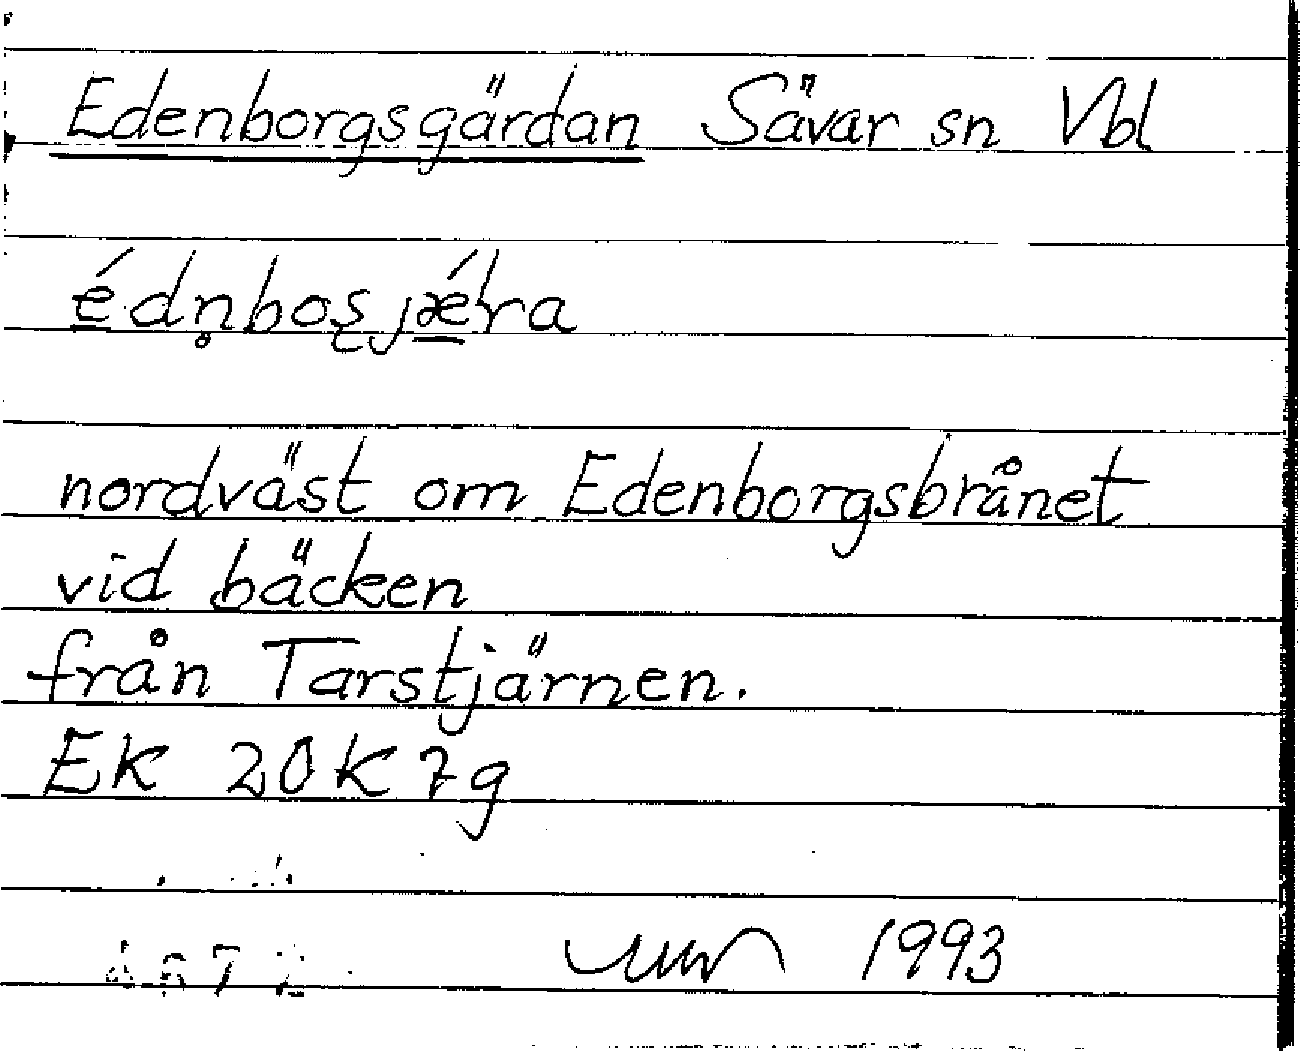 Edenborgsgärdan Sävar sn Vbl
édn̥bosjǽra
nordväst om Edenborgsbrånet
vid bäcken
från Tarstjärnen.
EK 20K7g
1993